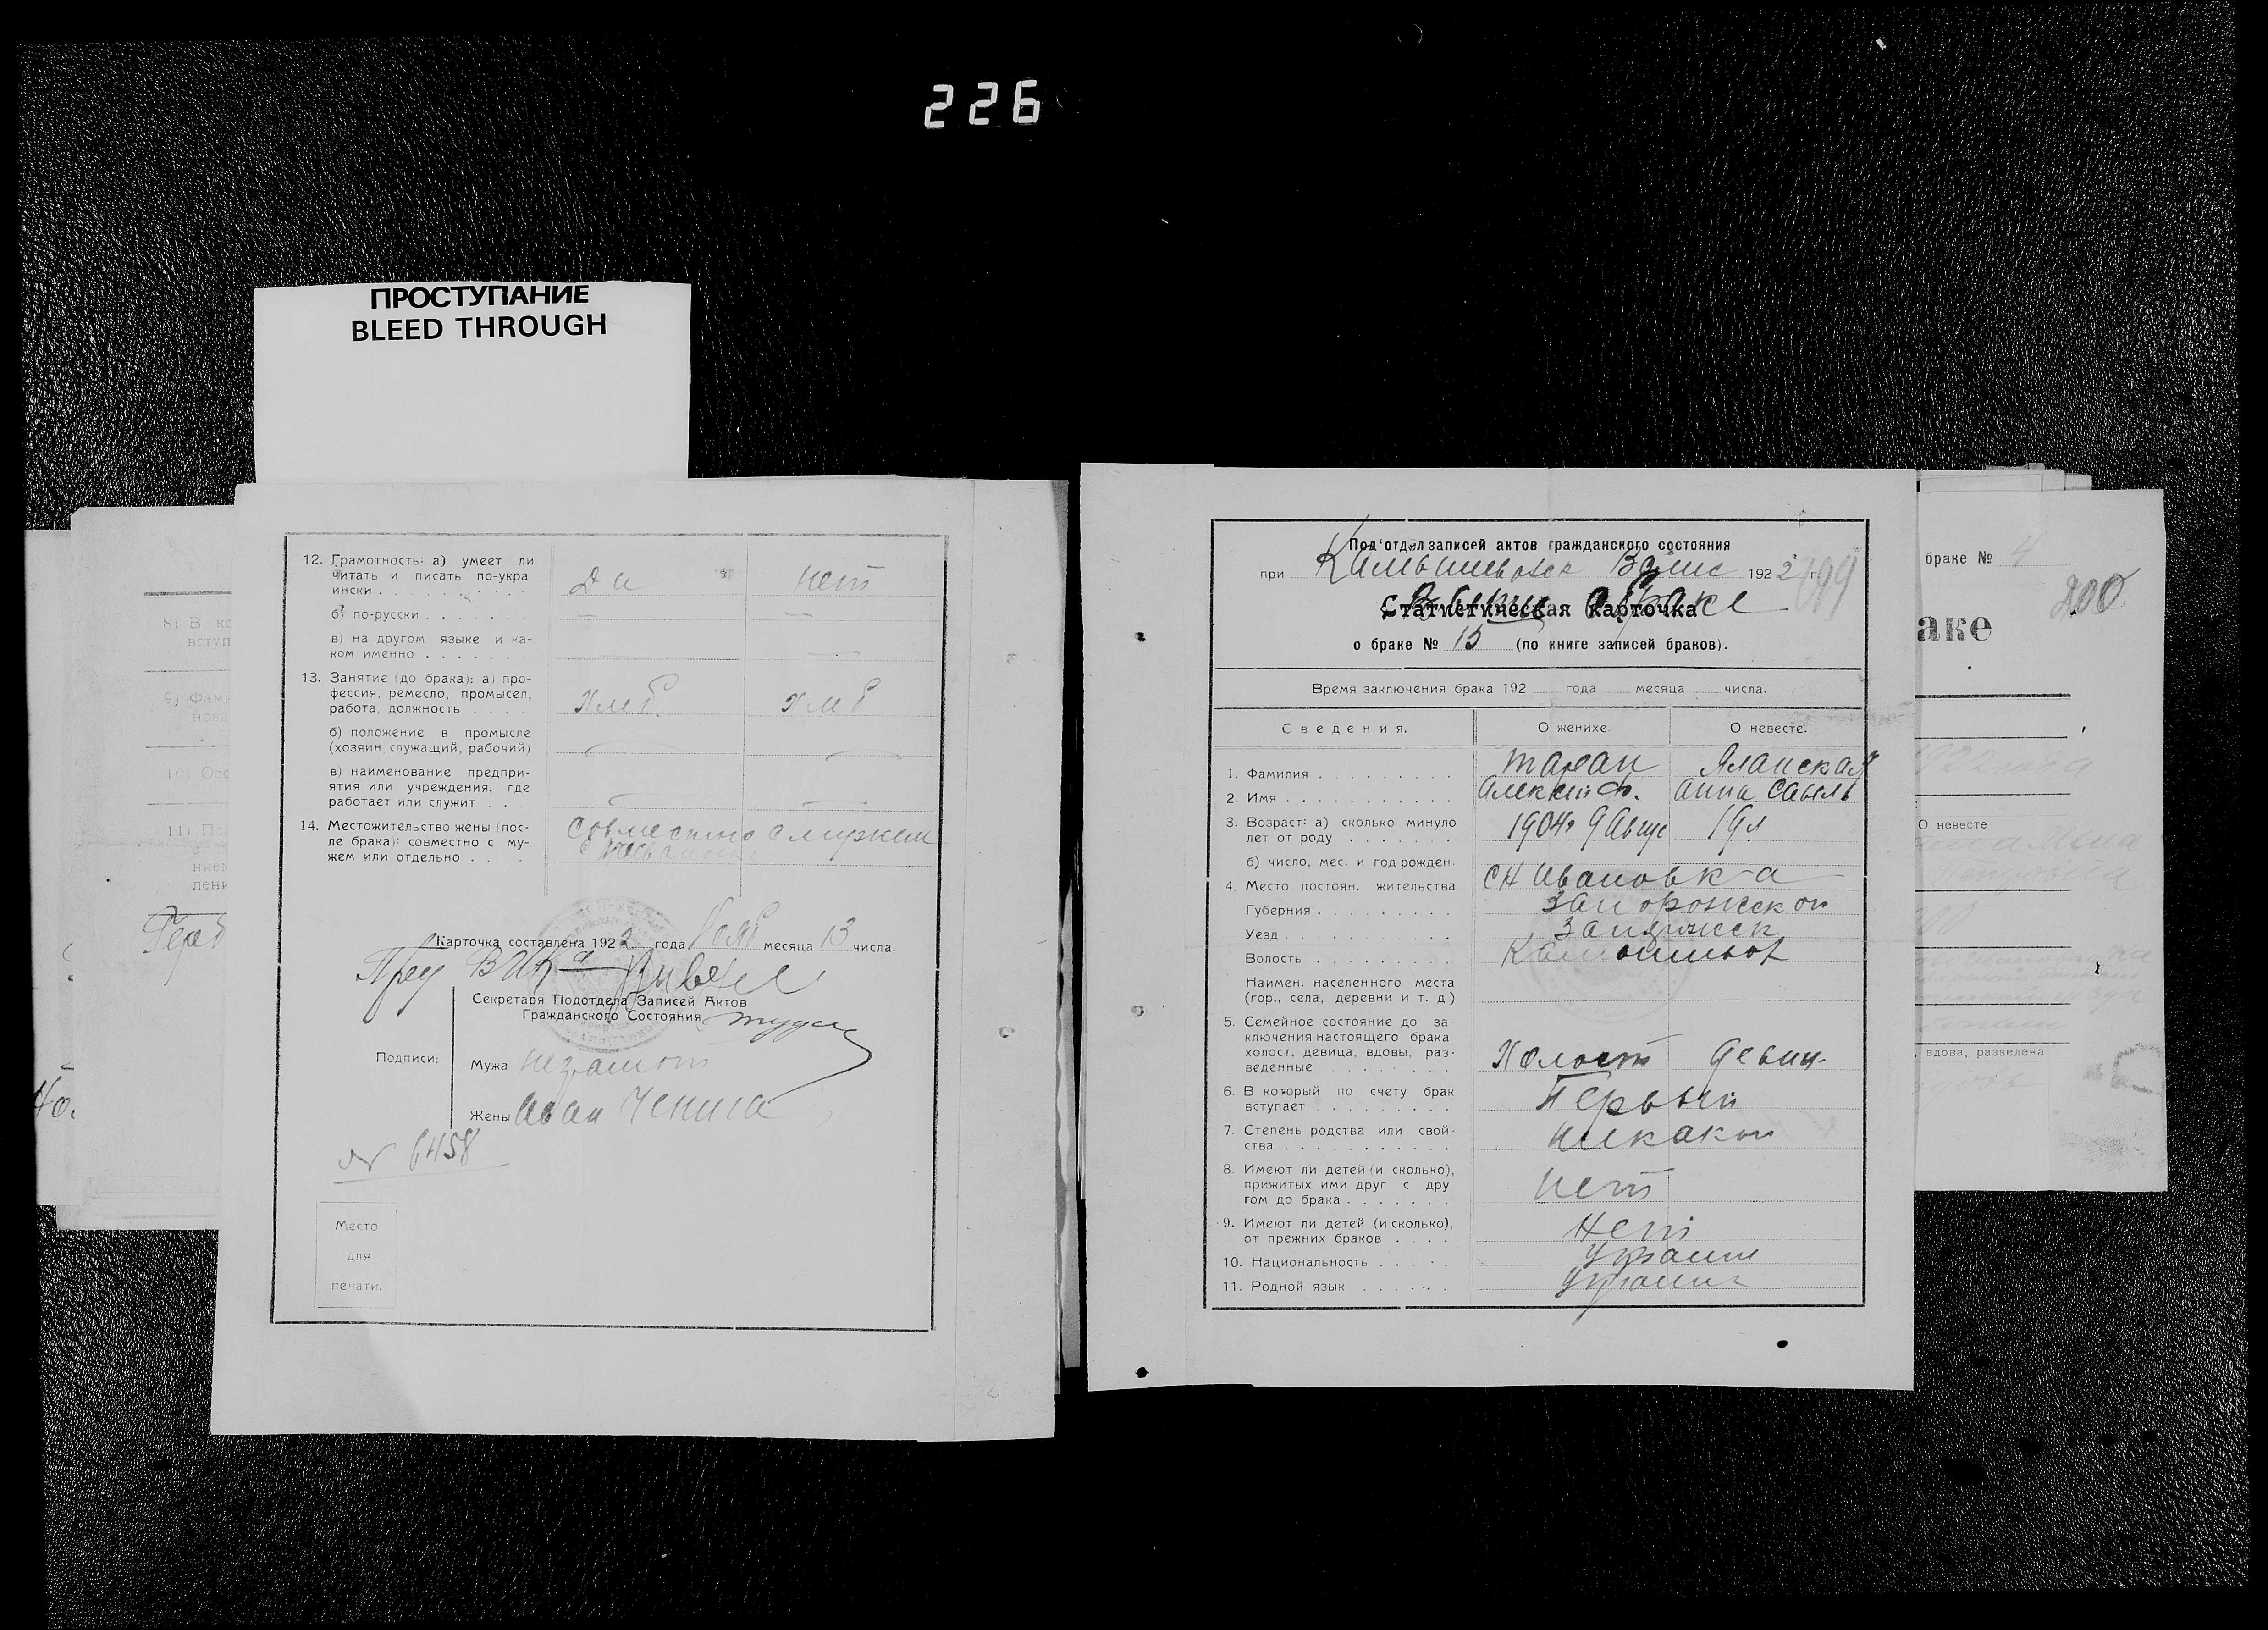 226
ПРОСТУПАНИЕ
BLEED THROUGH
12. Грамотность: а) умеет ли
читать и писать по-укра
ински Да нет
б) по-русски
в) на другом языке и ка-
ком именно
13. Занятие (до брака): а) про-
фессия, ремесло, промысел,
работа, должность Хлеб. Хлеб
б) положение в промысле
(хозяин, служащий, рабочий)
в) наименование предпри-
ятия или учреждения, где
работает или служит
14. Местожительство жены (пос-
ле брака): совместно с му-
жем или отдельно Совместно с мужем
Карточка составлена 1922 года Нояб месяца 13 числа.
Пред ВИКа
Секретаря Подотдела Записей Актов
Гражданского Состояния
Подписи:
Мужа Неграмот
Жены Иван
№ 6458
Место
для
печати.
Под'отдел записей актов гражданского состояния
при 1922 г.
199
Статистическая карточка
о браке № 15 (по книге записей браков).
Время заключения брака 192 года месяца числа.
Сведения. О женихе. О невесте.
1. Фамилия Таран Яланская
2. Имя Алексей Ф. Анна Савель
3. Возраст: а) сколько минуло
лет от роду 1904 9 Авгус 19 л
б) число, мес. и год рожден.
4. Место постоян. жительства СН Ивановк-а
Губерния Запорожской
Уезд
Волость
Наимен. населенного места
(гор., села, деревни и т. д.)
5. Семейное состояние до за
ключения настоящего брака
холост, девица, вдовы, раз-
веденные Холост Девиц.
6. В который по счету брак
вступает Первый
7. Степень родства или свой-
ства Никакой
8. Имеют ли детей (и сколько),
прижитых ими друг с дру
гом до брака Нет
9. Имеют ли детей (и сколько),
от прежних браков Нет
10. Национальность Украин
11. Родной язык Украин
браке № 4
200
аке
О невесте
вдова, разведена